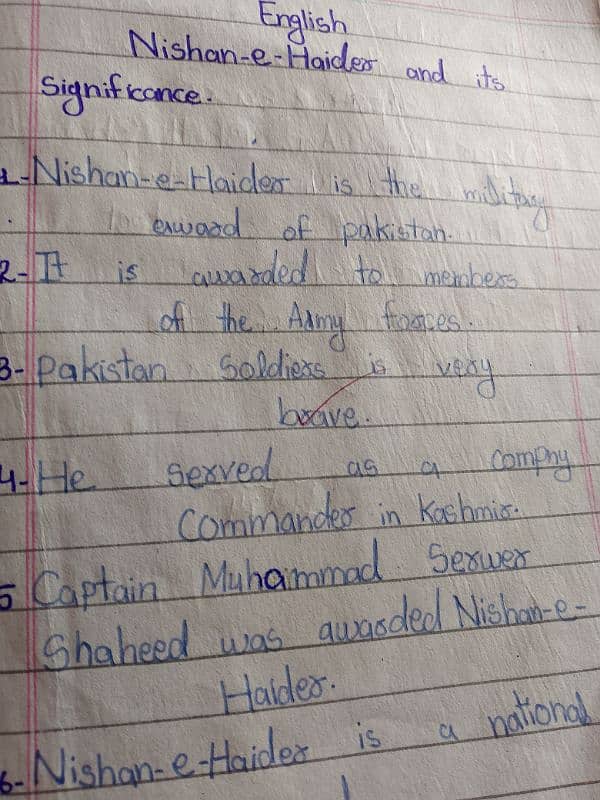 English
Nishan-e-Haider and its
Significance.
1-Nishan-e-Haider is the military
award of pakistan.
2-It is awarded to members
of the Army forces.
3-Pakistan Soldiers is very
brave.
4-He served as a compny
Commander in Kashmir.
5 Captain Muhammad Serwer
Shaheed was awarded Nishan-e-
Haider.
6-Nishan-e-Haider is a national